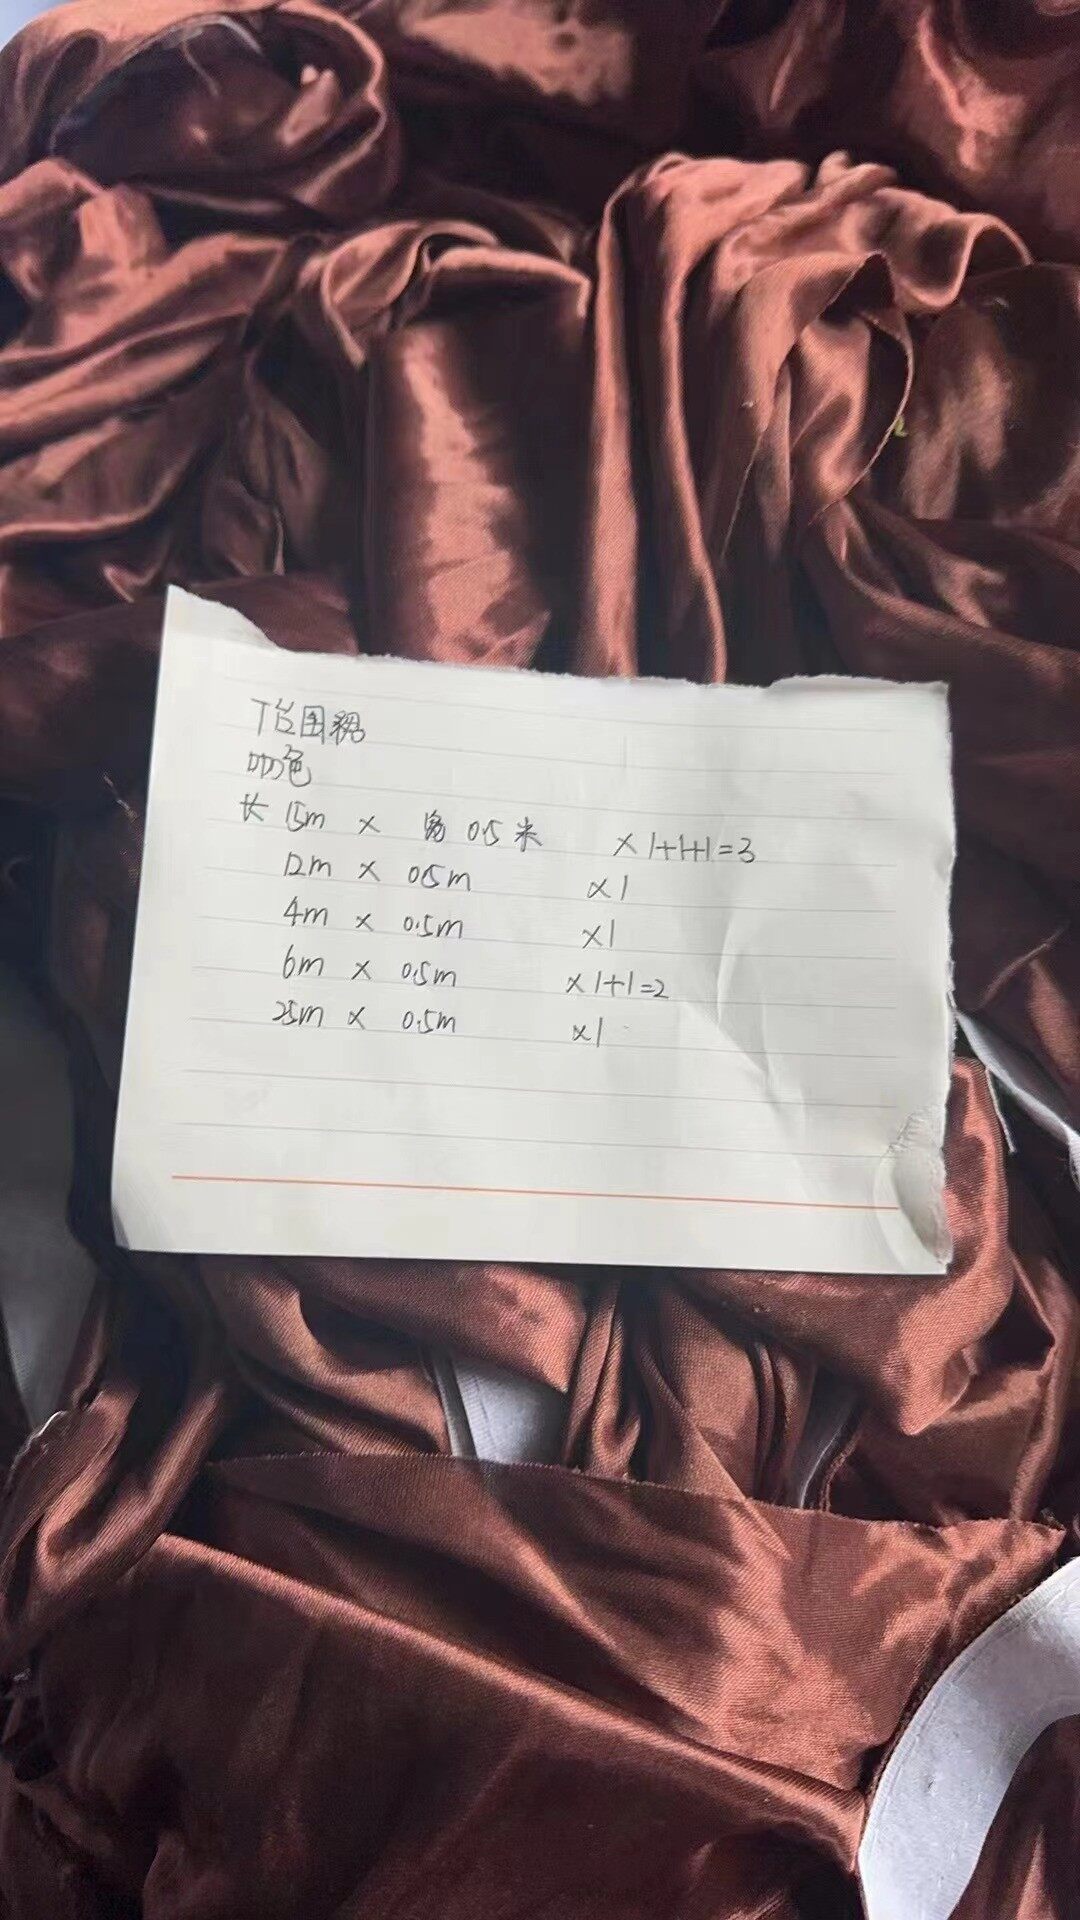 T台围裙
咖色
长 15m × 宽 0.5米 × 1+1+1=3
12m × 0.5m ×1
4m × 0.5m ×1
6m × 0.5m × 1+1=2
25m × 0.5m ×1